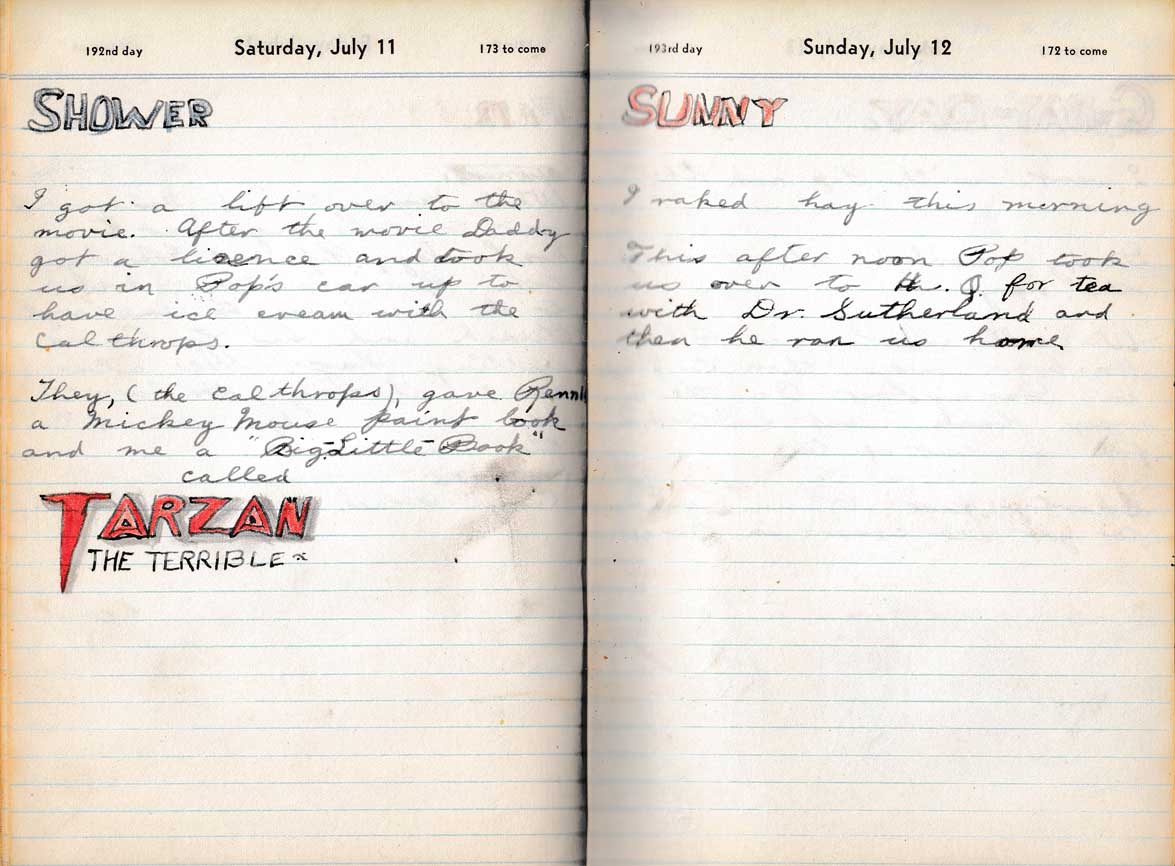 192nd day Saturday, July 11 173 to come
SHOWER
I got a lift over to the
movie. After the movie Daddy
got a licence and took
us in Pop's car up to
have ice cream with the
Calthrops.
They, (the Calthrops), gave
a Mickey Mouse paint book
and me a "Big-Little-Book"
called
TARZAN
THE TERRIBLE
193rd day Sunday, July 12 172 to come
SUNNY
I raked hay this morning
This after noon Pop took
us over to H. Q. for tea
with Dr. Sutherland and
then he ran us home